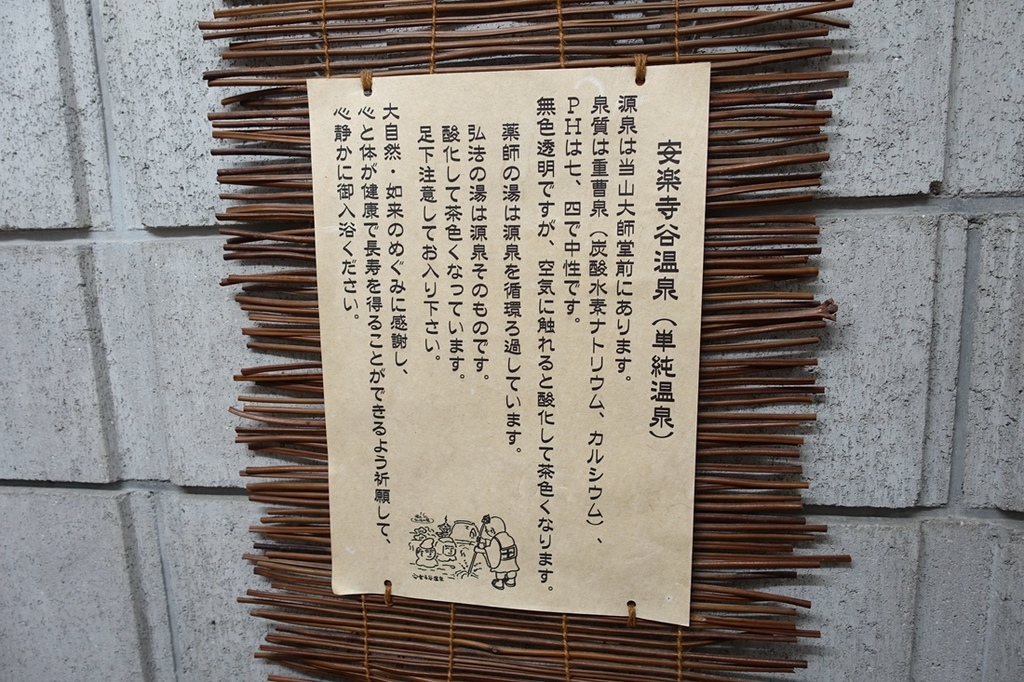 安楽寺谷温泉（単純温泉）
源泉は当山大師堂前にあります。
泉質は重曹泉（炭酸水素ナトリウム、カルシウム）、
ＰＨは七、四で中性です。
無色透明ですが、空気に触れると酸化して茶色くなります。
薬師の湯は源泉を循環ろ過しています。
弘法の湯は源泉そのものです。
酸化して茶色くなっています。
足下注意してお入り下さい。
大自然・如来のめぐみに感謝し、
心と体が健康で長寿を得ることができるよう祈願して、
心静かに御入浴ください。